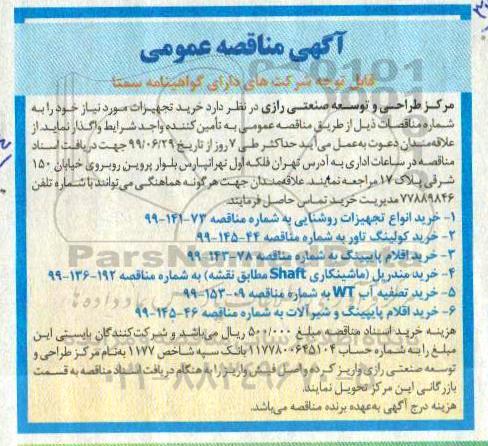 آگهی مناقصه عمومی
قابل توجه شرکت های دارای گواهینامه سمتا
مرکز طراحی و توسعه صنعتی رازی در نظر دارد خرید تجهیزات مورد نیاز خود را به
شماره مناقصات ذیل از طریق مناقصه عمومی به تأمین کننده واجد شرایط واگذار نماید. از
علاقه‌مندان دعوت به عمل می‌آید حداکثر طی ۷ روز از تاریخ ۹۹/۰۶/۲۹ جهت دریافت اسناد
مناقصه در ساعات اداری به آدرس تهران فلکه اول تهرانپارس بلوار پروین روبروی خیابان ۱۵۰
شرقی پلاک ۱۷ مراجعه نمایند. علاقه‌مندان جهت هرگونه هماهنگی می‌توانند با شماره تلفن
۷۷۸۸۹۸۴۶ مدیریت خرید تماس حاصل فرمایند.
۱- خرید انواع تجهیزات روشنایی به شماره مناقصه ۷۳-۱۴۱-۹۹
۲- خرید کولینگ تاور به شماره مناقصه ۴۴-۱۴۵-۹۹
۳- خرید اقلام پایپینگ به شماره مناقصه ۷۸-۱۴۳-۹۹
۴- خرید مندریل (ماشینکاری Shaft مطابق نقشه) به شماره مناقصه ۱۹۲-۱۳۶-۹۹
۵- خرید تصفیه آب WT به شماره مناقصه ۰۹-۱۵۳-۹۹
۶- خرید اقلام پایپینگ و شیرآلات به شماره مناقصه ۴۶-۱۴۵-۹۹
هزینه خرید اسناد مناقصه مبلغ ۵۰۰/۰۰۰ ریال می‌باشد و شرکت‌کنندگان بایستی این
مبلغ را به شماره حساب ۱۱۷۷۸۰۰۶۴۵۱۰۴ بانک سپه شاخص ۱۱۷۷ به‌نام مرکز طراحی و
توسعه صنعتی رازی واریز کرده و اصل فیش واریز را به هنگام دریافت اسناد مناقصه به قسمت
بازرگانی این مرکز تحویل نمایند.
هزینه درج آگهی به‌عهده برنده مناقصه می‌باشد.